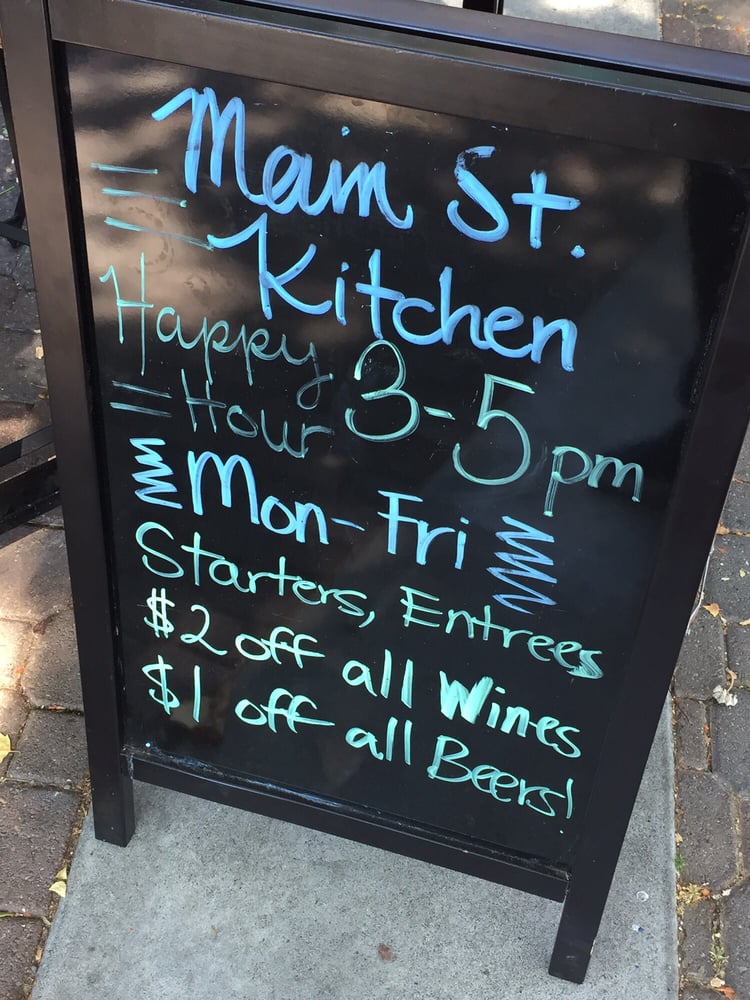 Main St.
Kitchen
Happy
Hour 3-5pm
Mon-Fri
Starters, Entrees
$2 off all Wines
$1 off all Beers!